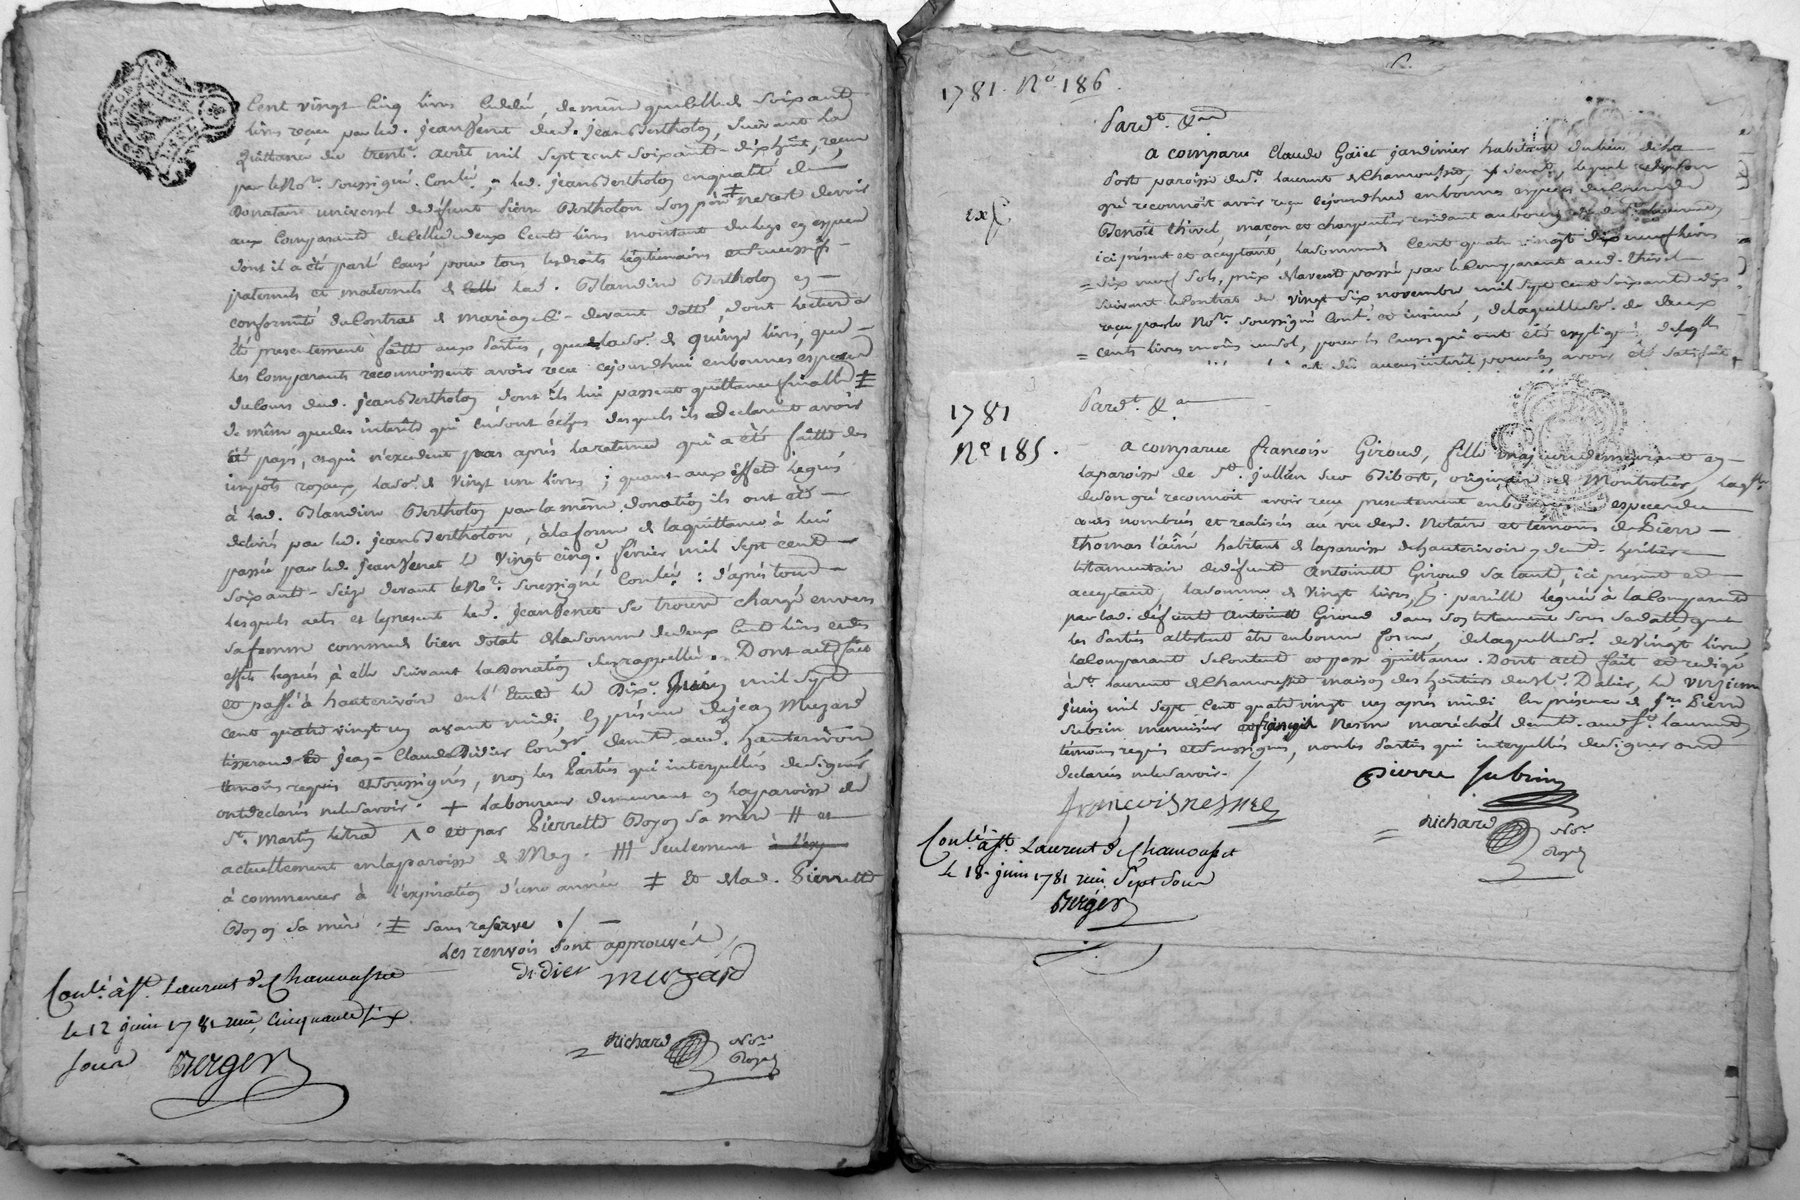 Cent vingt Cinq livres Cedée, de même que celle de soixante
livres reçue par led. jean Venet dud. jean Bertholon, suivant la
quittance du trente avril mil sept cent soixante-dix huit, reçue
par le No.re soussigné. Conlé; led. jean Bertholon en qualité de
Donataire universel de défunt pierre Bertholon son père ‡ n'est devoir
aux Comparants de celle de deux Cents livres montant du legs en espèces
dont il a été parlé causé pour tous les droits légitimaires et successifs
paternels et maternels de lad. Blandine Bertholon en
conformité du Contrat de mariage ci-devant datté, dont lecture a
été presentement faitte aux Parties, que la so.e de quinze livres, que
les Comparants reconnoissent avoir reçue cejourd'hui en bonnes espèces
du cours dud. jean Bertholon dont ils lui passent quittance finalle ‡
de même que des interêts qui en sont échus desquels ils declarent avoir
été payés, et qui n'excedent pas après la retenue qui a été faitte des
impôts royaux, la so.e de vingt une livres; quant aux effets legués
à lad. Blandine Bertholon par la même donation ils ont été
délivrés par led. jean Bertholon, à la forme de la quittance à lui
passée par led. jean Venet le vingt cinq.e février mil sept cent
soixante-seize devant le No.re soussigné Conlée: d'après tout
lesquels acts et le present led. jean Venet se trouve chargé envers
sa femme comme bien dotal de la somme de deux Cent livres et des
effets legués à elle suivant la Donation susrappellée. Dont act fait
et passé à hauterivoire en l'Etude le Dix.e juin mil sept
cent quatre vingt un avant midi, en présence de jean Muzard
tisserand et jean-Claude Didier Cord.r demt. aud. hauterivoire
témoins requis et soussignés, non les Parties qui interpellées de signer
ont declarés ne le savoir. + laboureur demeurant en la paroisse de
St. Martin Lestrad 1° et par Pierrette Boyon sa mère # et
actuellement en la paroisse de Meys. ### seulement
à commencer à l'expiration d'une année ‡ Et de lad. Pierrette
Boyon sa mère: ‡ sans reserve ./. —
Les renvois sont approuvés /
didier muzard
Conlé. à St. Laurent de Chamousset
le 12 juin 1781 reçu, Cinquante six
sous Berger
= Richard No.re Royal
1781. No. 186.
Pardt. &a
A comparu Claude Gaiet jardinier habitant du lieu de la
Poste paroisse de St. Laurent de Chamousset, y demt., lequel de son
gré reconnoît avoir reçu cejourd'hui en bonnes espèces du Cours de
Exp.
Benoît thivel, maçon et charpentier residant au bourg dud. St. Laurent
ici présent et acceptant, la somme de Cent quatre vingt dix neuf livres
= dix neuf sols, prix de la vente passée par le Comparant aud. thivel
suivant le Contrat du vingt-six novembre mil sept cent soixante dix
reçu par le No.re soussigné Conl. et insinué, de laquelle so.e de deux
= cents livres moins un sol, pour les causes qui ont été expliquées, desquelles
est dû aucun interêt pour en avoir été satisfait
1781
No. 185.
Pardt. &a
A comparue françoise Giroud, fille majeure demeurant en
la paroisse de St. jullien sur Bibost, originaire de Montrotier, laqlle.
de son gré reconnoît avoir reçu presentement en bonnes especes du
cours nombrés et realisés au vu desd. Notaire et témoins de Pierre
thomas l'aîné habitant de la paroisse de hauterivoire y demt. héritier
testamentaire de défunte Antoinette Giroud sa tante, ici présent et
acceptant, la somme de vingt livres, pareille leguée à la Comparante
par lad. défunte Antoinette Giroud dans son testament sous sa datte, que
les Parties attestent être en bonne forme, de laquelle so.e de vingt livres
la Comparante se contente et passe quittance. Dont act fait et redigé
à St. Laurent de Chamousset maison des héritiers du Sr. Dalier, le onzieme
juin mil sept Cent quatre vingt un après midi en présence de Sr. Pierre
Subrin menuisier et françois Nesme maréchal demt. aud. St. Laurent
témoins requis et soussignés, non les Parties qui interpellées de signer ont
declarés ne le savoir. /
pierre subrin
francois nesme
= Richard No.re Royal
Conlé. à St. Laurent de Chamousset
le 18 juin 1781 reçu Sept sous
Berger